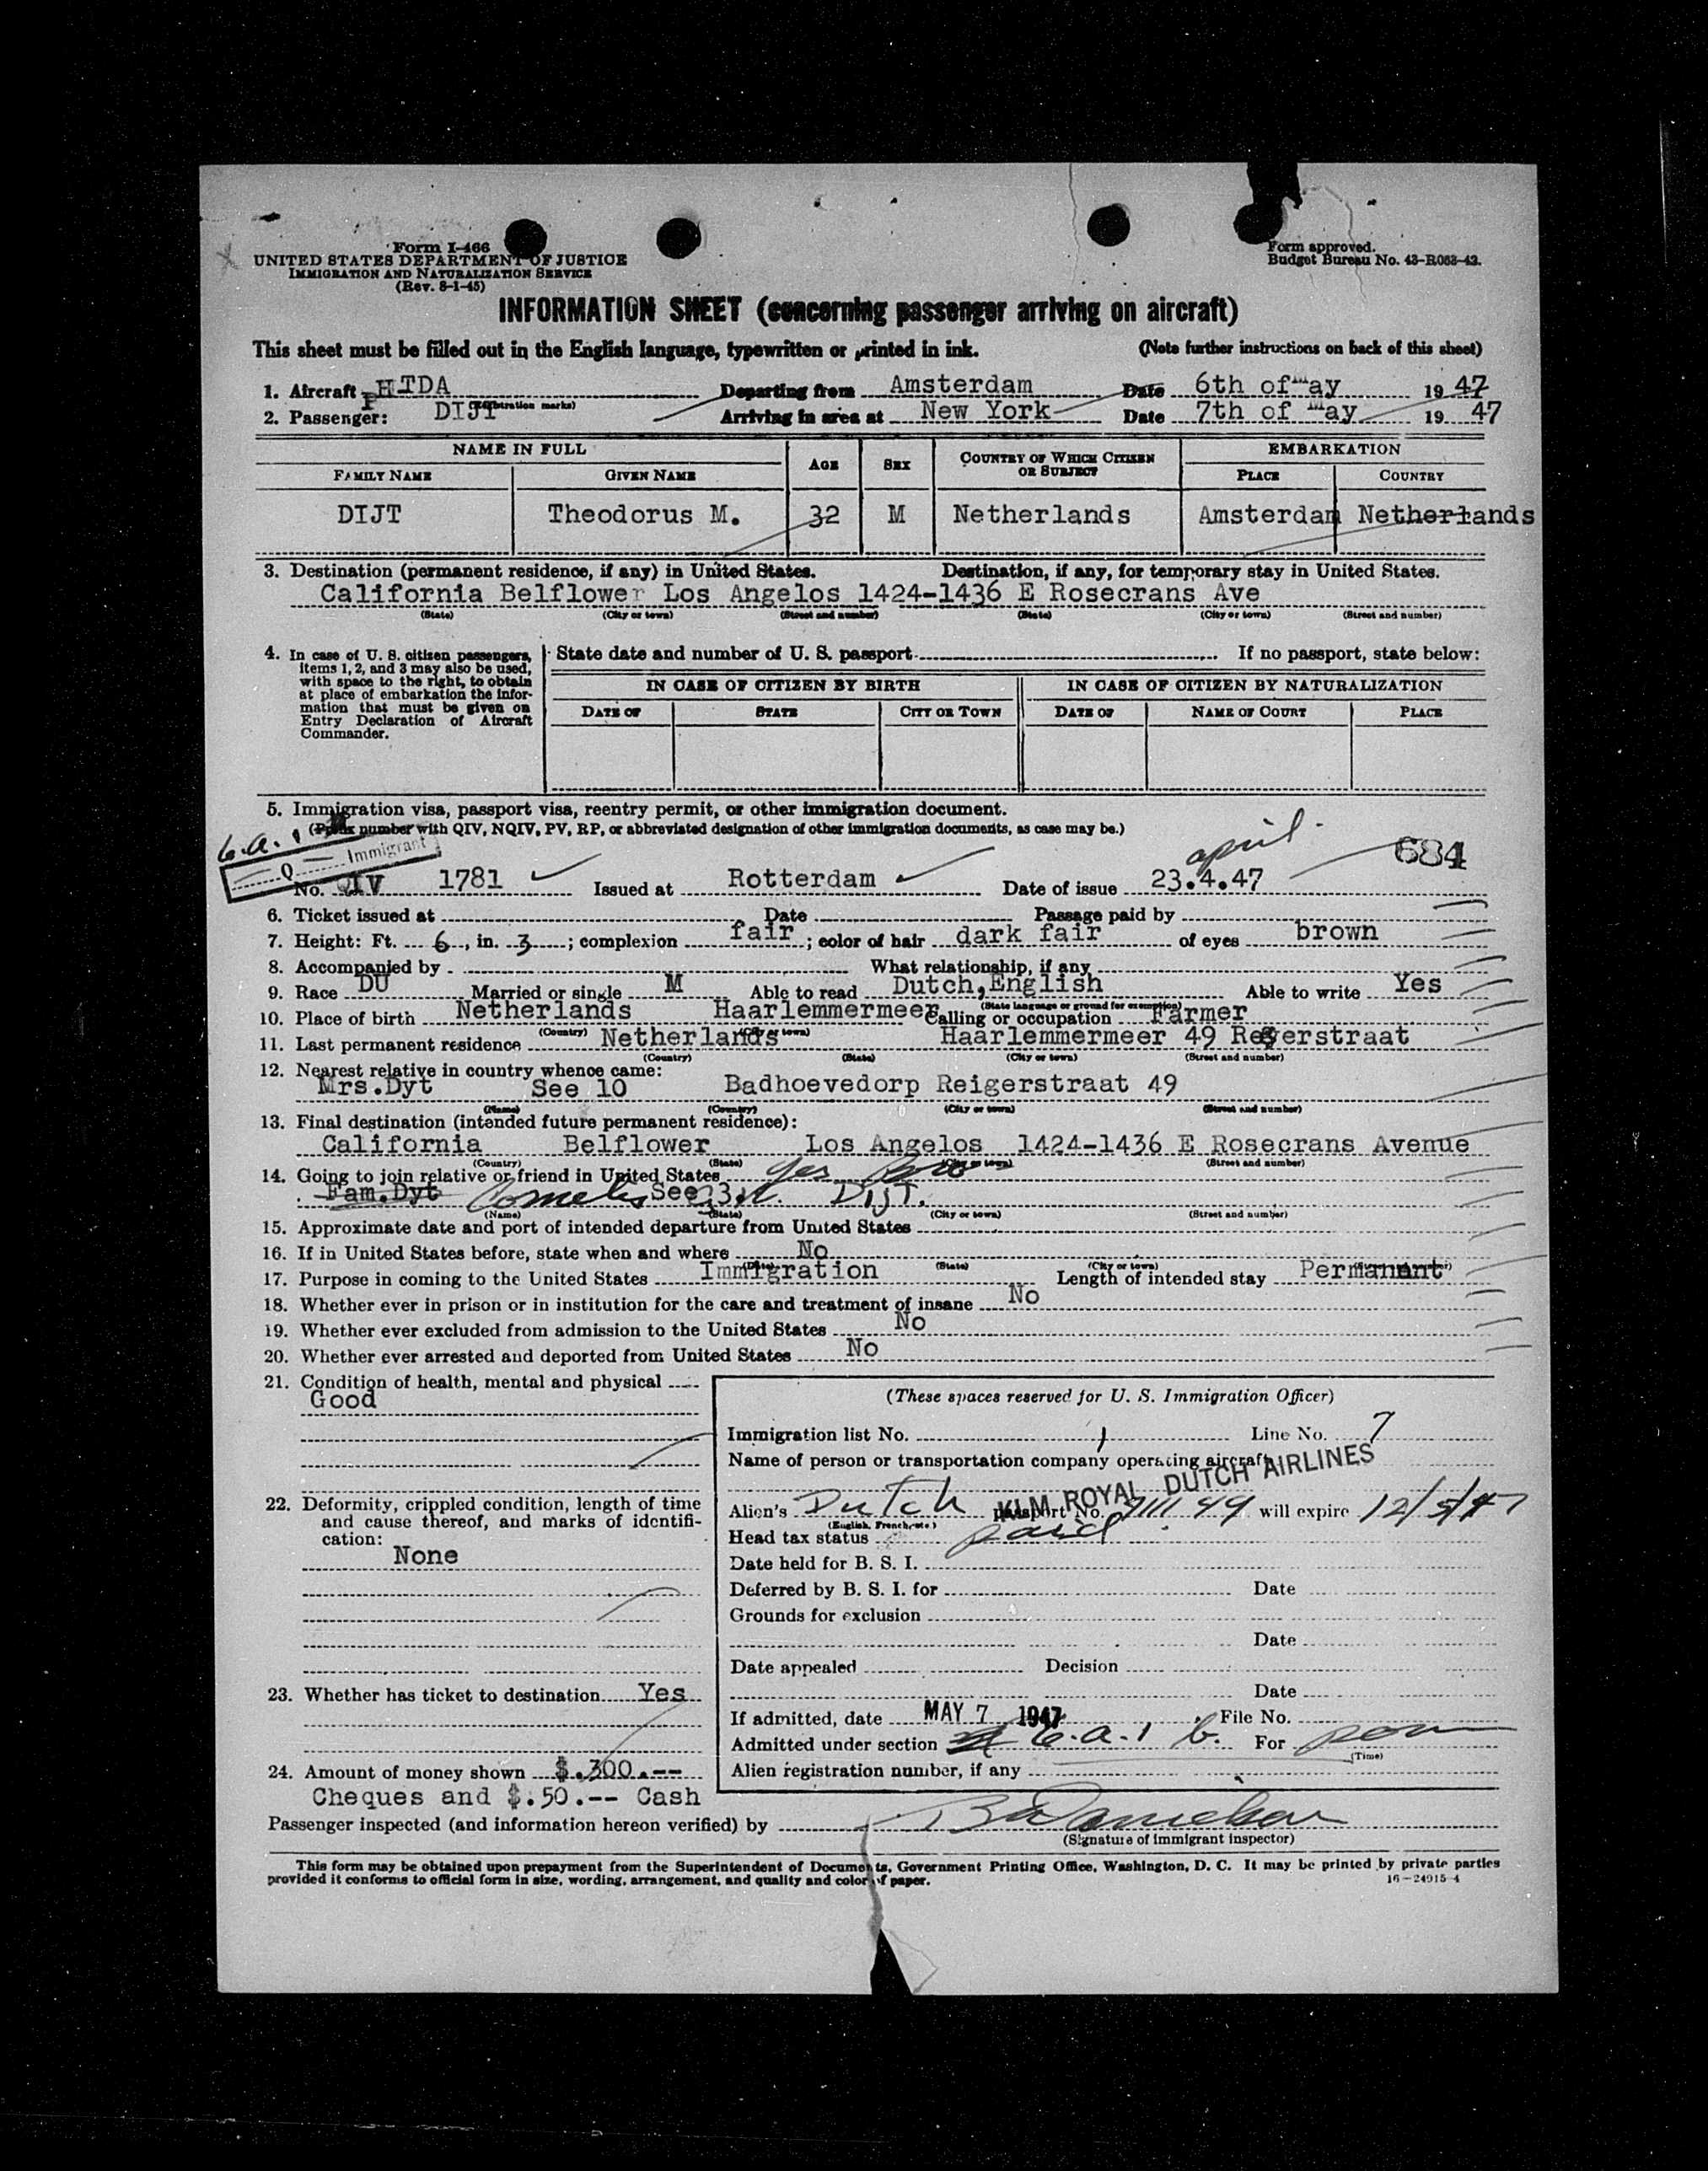 Form I-466
UNITED STATES DEPARTMENT OF JUSTICE
IMMIGRATION AND NATURALIZATION SERVICE
(Rev. 8-1-45)
Form approved.
Budget Bureau No. 43-R063-43.
INFORMATION SHEET (concerning passenger arriving on aircraft)
This sheet must be filled out in the English language, typewritten or printed in ink. (Note further instructions on back of this sheet)
1. Aircraft PH-TDA Departing from Amsterdam Date 6th of May 1947
(Registration marks)
2. Passenger: DIJT Arriving in area at New York Date 7th of May 1947
NAME IN FULL AGE SEX COUNTRY OF WHICH CITIZEN OR SUBJECT EMBARKATION
FAMILY NAME GIVEN NAME PLACE COUNTRY
DIJT Theodorus M. 32 M Netherlands Amsterdam Netherlands
3. Destination (permanent residence, if any) in United States. Destination, if any, for temporary stay in United States.
California Belflower Los Angelos 1424-1436 E Rosecrans Ave
(State) (City or town) (Street and number) (State) (City or town) (Street and number)
4. In case of U. S. citizen passengers, items 1, 2, and 3 may also be used, with space to the right, to obtain at place of embarkation the information that must be given on Entry Declaration of Aircraft Commander.
State date and number of U. S. passport If no passport, state below:
IN CASE OF CITIZEN BY BIRTH IN CASE OF CITIZEN BY NATURALIZATION
DATE OF STATE CITY OR TOWN DATE OF NAME OF COURT PLACE
5. Immigration visa, passport visa, reentry permit, or other immigration document.
(Prefix number with QIV, NQIV, PV, RP, or abbreviated designation of other immigration documents, as case may be.)
6.a.1
Q Immigrant
april
684
No. QIV 1781 Issued at Rotterdam Date of issue 23.4.47
6. Ticket issued at Date Passage paid by
7. Height: Ft. 6, in. 3; complexion fair; color of hair dark fair of eyes brown
8. Accompanied by What relationship, if any
9. Race DU Married or single M Able to read Dutch,English Able to write Yes
(State language or ground for exemption)
10. Place of birth Netherlands Haarlemmermeer Calling or occupation Farmer
(Country) (City or town)
11. Last permanent residence Netherlands Haarlemmermeer 49 Regerstraat
(Country) (State) (City or town) (Street and number)
12. Nearest relative in country whence came:
Mrs.Dyt See 10 Badhoevedorp Reigerstraat 49
(Name) (Country) (City or town) (Street and number)
13. Final destination (intended future permanent residence):
California Belflower Los Angelos 1424-1436 E Rosecrans Avenue
(Country) (State) (City or town) (Street and number)
14. Going to join relative or friend in United States yes Bro
Fam.Dyt Cornelis See 3 DIJT.
(Name) (State) (City or town) (Street and number)
15. Approximate date and port of intended departure from United States
16. If in United States before, state when and where No
(Date) (State) (City or town)
17. Purpose in coming to the United States Immigration Length of intended stay Permanant
18. Whether ever in prison or in institution for the care and treatment of insane No
19. Whether ever excluded from admission to the United States No
20. Whether ever arrested and deported from United States No
21. Condition of health, mental and physical
Good
22. Deformity, crippled condition, length of time and cause thereof, and marks of identification:
None
23. Whether has ticket to destination Yes
24. Amount of money shown $.300.--
Cheques and $.50.-- Cash
(These spaces reserved for U. S. Immigration Officer)
Immigration list No. 1 Line No. 7
Name of person or transportation company operating aircraft
KLM ROYAL DUTCH AIRLINES
Alien's Dutch passport No. will expire 12/5/47
(English, French, etc.)
Head tax status paid
Date held for B. S. I.
Deferred by B. S. I. for Date
Grounds for exclusion
Date
Date appealed Decision
Date
If admitted, date MAY 7 1947 File No.
Admitted under section 6.a.1 b. For
(Time)
Alien registration number, if any
Passenger inspected (and information hereon verified) by
(Signature of immigrant inspector)
This form may be obtained upon prepayment from the Superintendent of Documents, Government Printing Office, Washington, D. C. It may be printed by private parties
provided it conforms to official form in size, wording, arrangement, and quality and color of paper.
16-24915-4